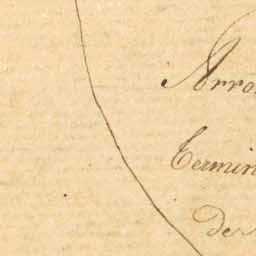 Arro
Termin
de